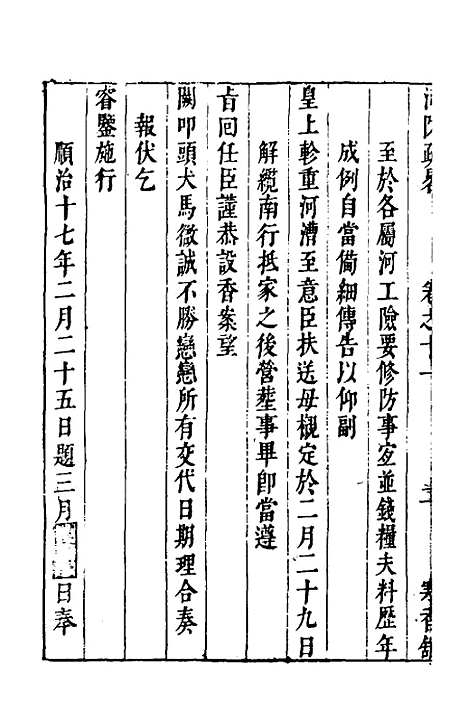 至於各屬河工險要修防事宜並錢糧夫料歷年
成例自當備細傳告以仰副
皇上軫重河漕至意臣扶送母櫬定於二月二十九日
解纜南行抵家之後營塟事畢卽當遵
旨回任臣謹恭設香案望
闕叩頭犬馬微誠不勝戀戀所有交代日期理合奏
報伏乞
睿鑒施行
順治十七年二月二十五日題三月日奉